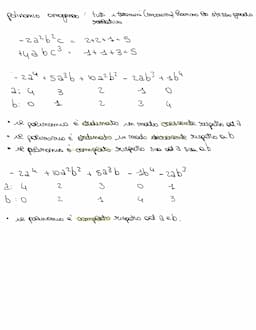 polinomio omogeneo : tutti i termini (monomi) hanno lo stesso grado
-2a²b²c = 2+2+1=5
+4abc³ = 1+1+3=5
-2a⁴ +5a³b +10a²b² -2ab³ +1b⁴
a: 4 3 2 1 0
b: 0 1 2 3 4
• il polinomio è ordinato in modo crescente rispetto ad a
• il polinomio è ordinato in modo decrescente rispetto a b
• il polinomio è completo rispetto sia ad a sia a b
-2a⁴ +10a²b² +5a³b -1b⁴ -2ab³
a: 4 2 3 0 1
b: 0 2 1 4 3
• il polinomio è completo rispetto ad a e b.